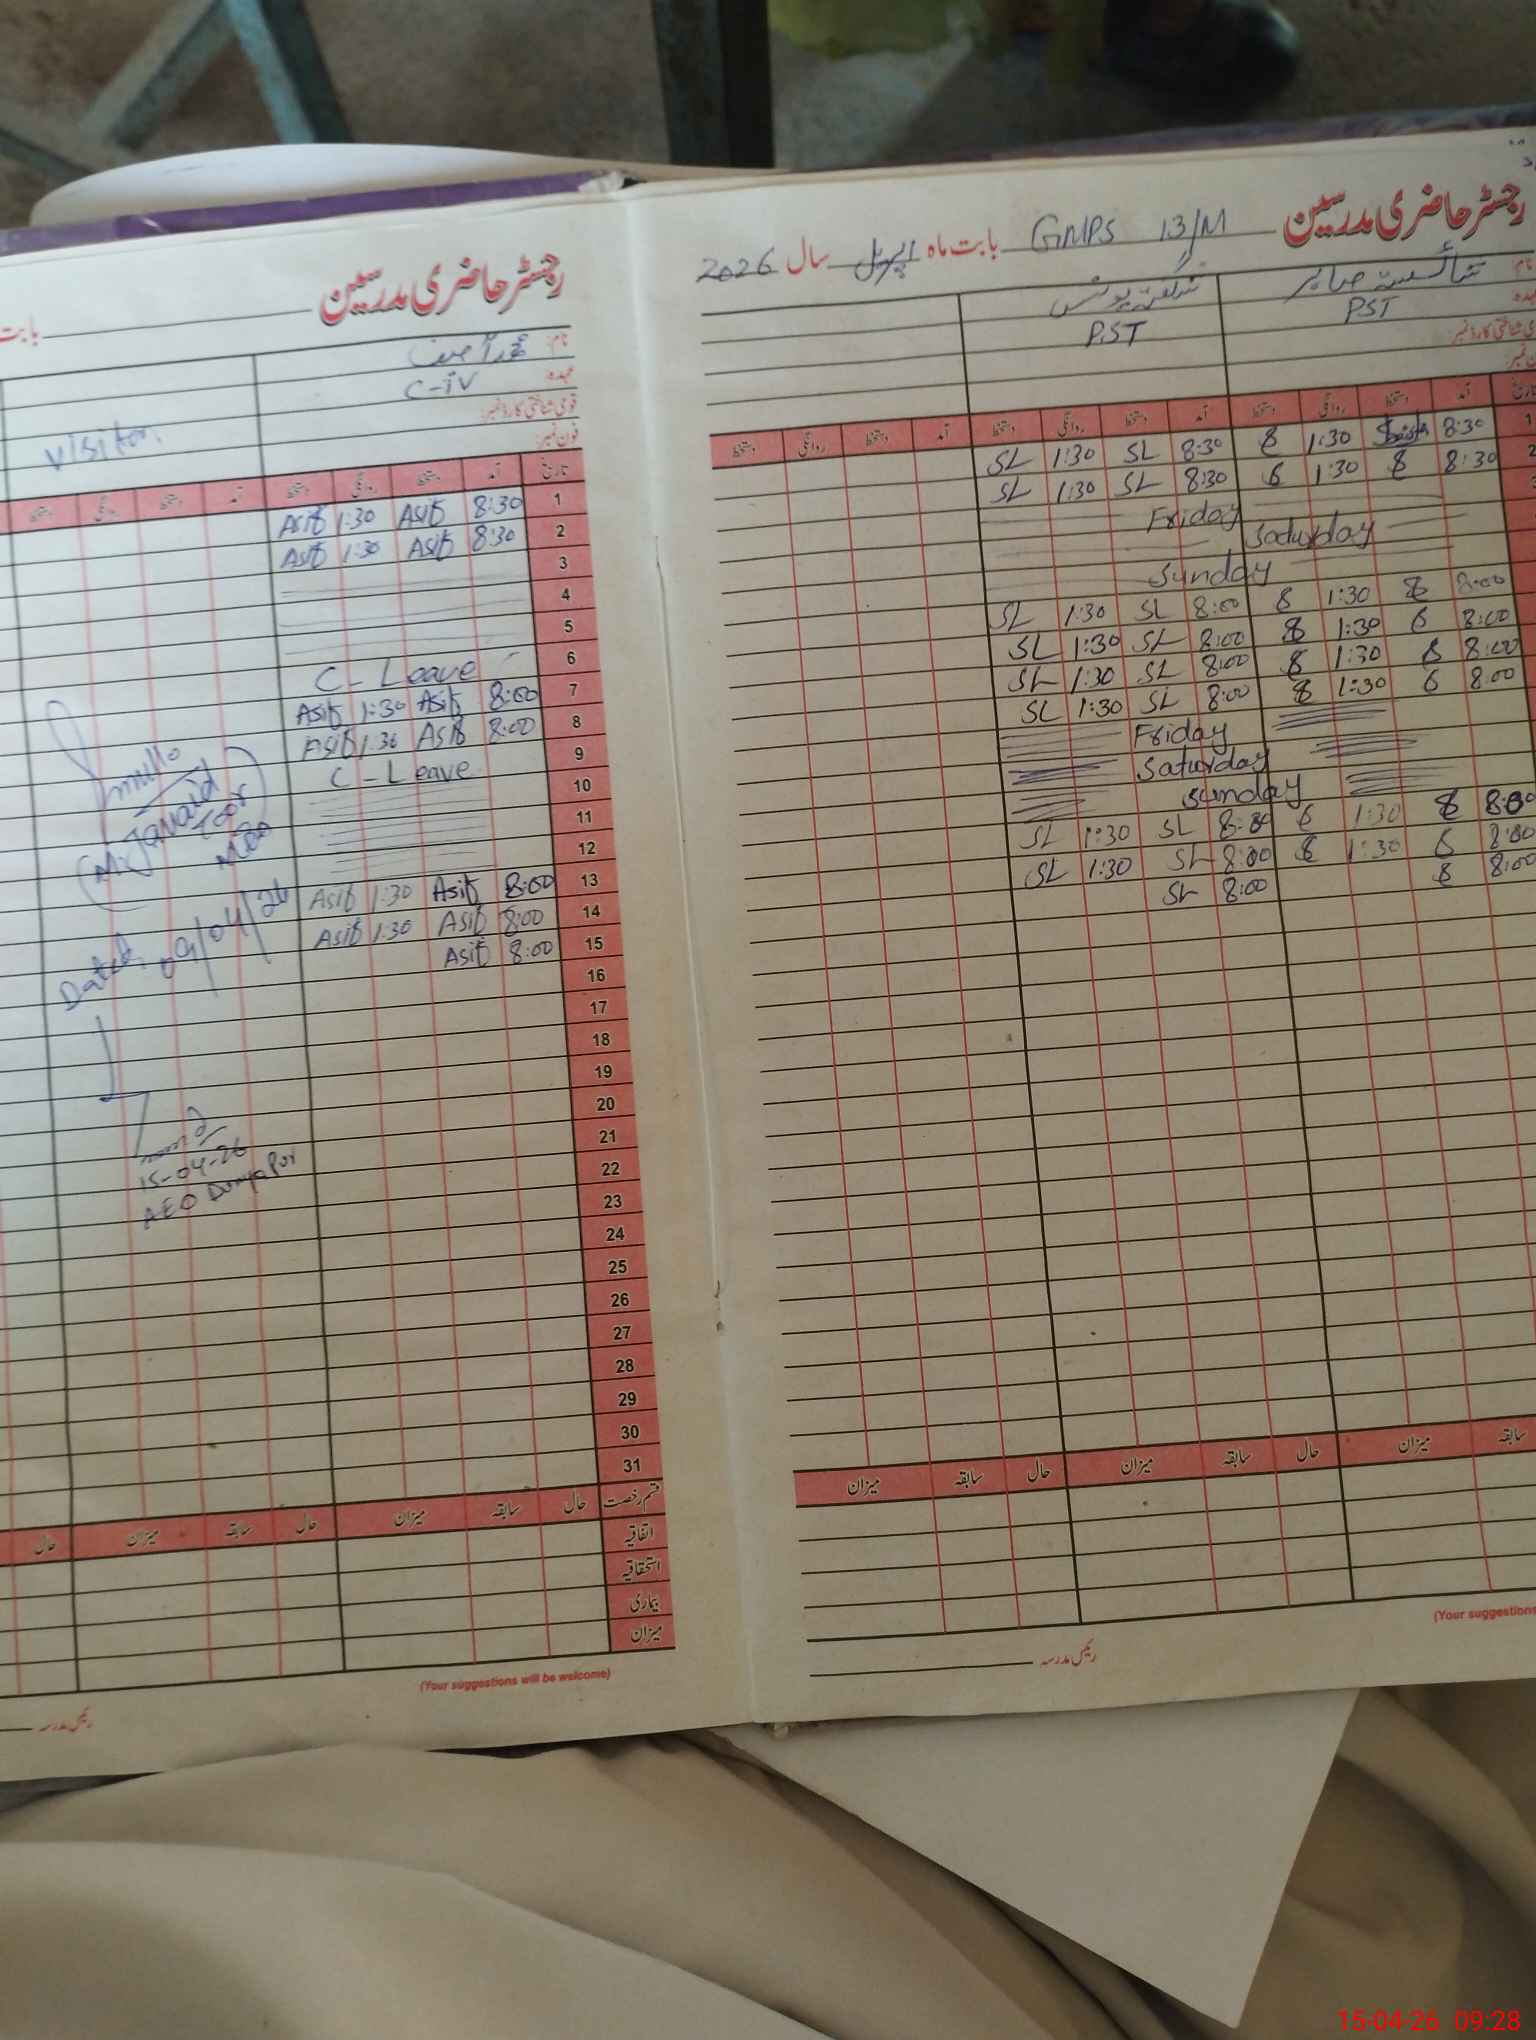 رجسٹر حاضری مدرسین
بابت ماہ GMPS 13/M اپریل سال 2026
نام: شائستہ صابر شگفتہ یونس
PST PST
آمد دستخط روانگی دستخط آمد دستخط روانگی دستخط آمد دستخط روانگی دستخط
1 8:30 1:30 8 8:30 SL 1:30 SL
2 8:30 8 1:30 8 8:30 SL 1:30 SL
Friday
Saturday
Sunday
8:00 8 1:30 8 8:00 SL 1:30 SL
8:00 6 1:30 8 8:00 SL 1:30 SL
8:00 8 1:30 8 8:00 SL 1:30 SL
8:00 6 1:30 8 8:00 SL 1:30 SL
Friday
Saturday
Sunday
8:00 8 1:30 6 8:00 SL 1:30 SL
8:00 6 1:30 8 8:00 SL 1:30 SL
8:00 8 8:00 SL
سابقہ میزان حال سابقہ میزان حال سابقہ میزان
(Your suggestions
رئیس مدرسہ
رجسٹر حاضری مدرسین
بابت
نام:
عہدہ: C-iV
قومی شناختی کارڈ نمبر:
فون نمبر:
Visitor
تاریخ آمد دستخط روانگی دستخط آمد دستخط روانگی دستخط
1 8:30 Asif 1:30 Asif
2 8:30 Asif 1:30 Asif
3
4
5
6 C - Leave
7 8:00 Asif 1:30 Asif
8 8:00 Asif 1:30 Asif
9 C - Leave
10
11
12
13 8:00 Asif 1:30 Asif
14 8:00 Asif 1:30 Asif
15 8:00 Asif
16
17
18
19
20
21
22
23
24
25
26
27
28
29
30
31
(M. Javaid
Dated. 09/04/26
15-04-26
AEO Dunyapur
قسم رخصت حال سابقہ میزان حال سابقہ میزان حال
اتفاقیہ
استحقاقیہ
بیماری
میزان
(Your suggestions will be welcome)
رئیس مدرسہ
15-04-26 09:28